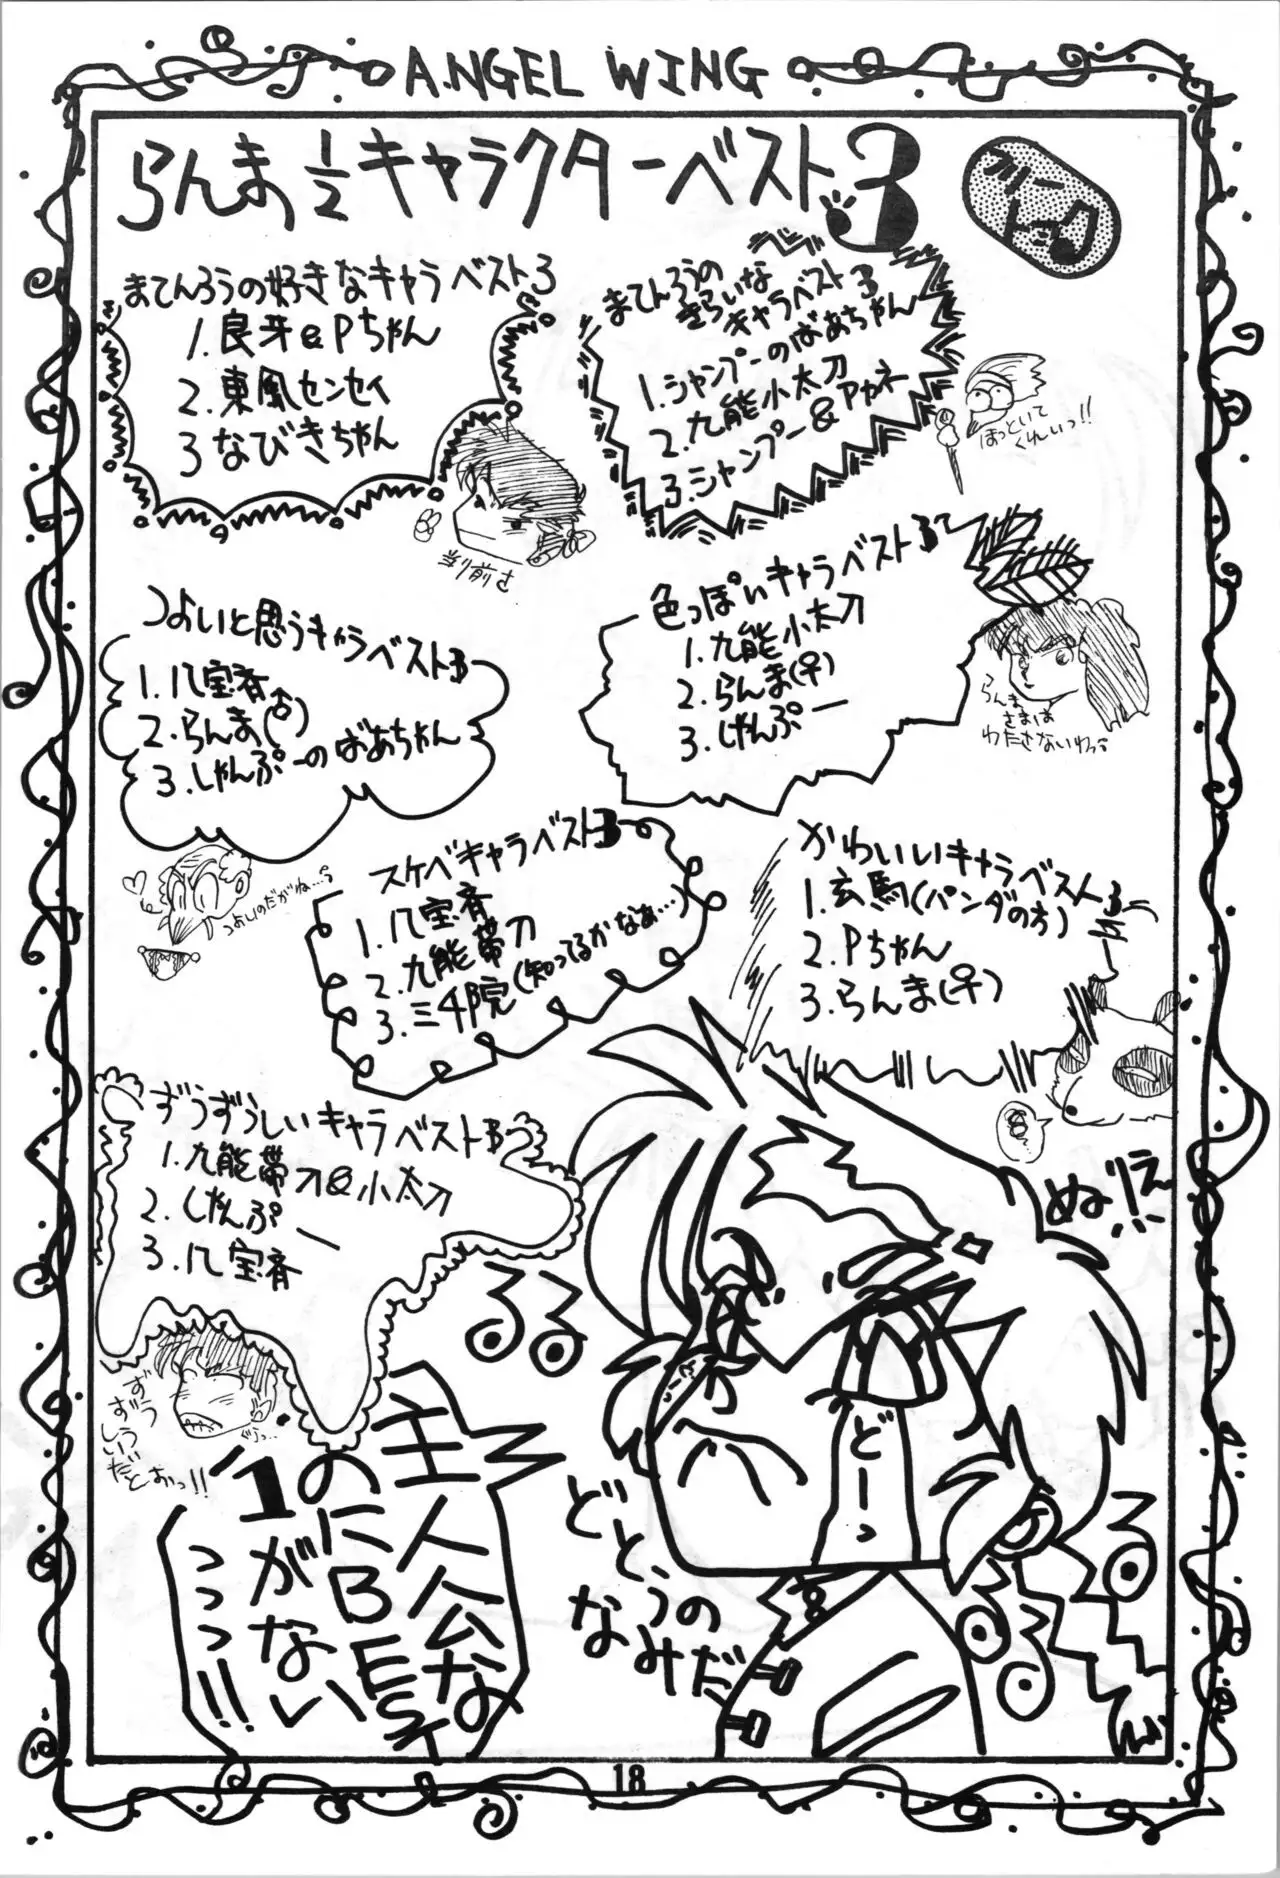 ANGEL WING
らんま1/2キャラクターベスト3
フリートーク
まてんろうの好きなキャラベスト3
1.良牙&Pちゃん
2.東風センセイ
3なびきちゃん
当り前さ
まてんろうの
きらいな
キャラベスト3
1.シャンプーのばあちゃん
2.九能小太刀
3.シャンプー&アカネ
ほっといて
くれいっ!!
つよいと思うキャラベスト3
1.八宝斉
2.らんま(♂)
3.しゃんぷーのばあちゃん
つよいのだがね…
色っぽいキャラベスト3
1.九能小太刀
2.らんま(♀)
3.しゃんぷー
らんま
さまは
わたさないわっ
スケベキャラベスト3
1.八宝斉
2.九能帯刀
3.三千院(知ってるかなぁ…)
かわいいキャラベスト3
1.玄馬(パンダの方)
2.Pちゃん
3.らんま(♀)
ずうずうしいキャラベスト3
1.九能帯刀&小太刀
2.しゃんぷー
3.八宝斉
ずう
ずう
しい
だとおっ!!
主人公な
のにBEST
1がない
っっっ!!
るる
どとうの
なみだ
どーっ
るる
るる
18